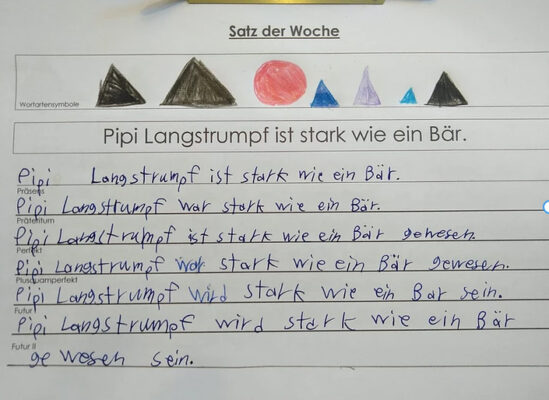 Satz der Woche
Wortartensymbole
Pipi Langstrumpf ist stark wie ein Bär.
Pipi Langstrumpf ist stark wie ein Bär.
Präsens
Pipi Langstrumpf war stark wie ein Bär.
Präteritum
Pipi Langstrumpf ist stark wie ein Bär gewesen.
Perfekt
Pipi Langstrumpf war stark wie ein Bär gewesen.
Plusquamperfekt
Pipi Langstrumpf wird stark wie ein Bar sein.
Futur I
Pipi Langstrumpf wird stark wie ein Bär
Futur II
gewesen sein.